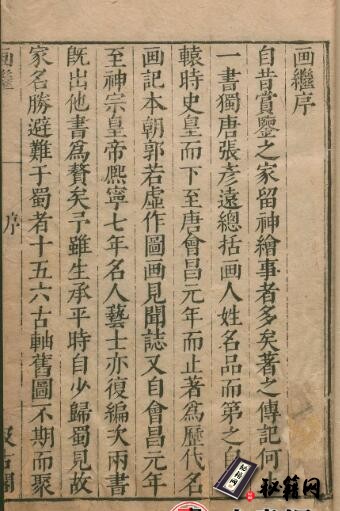 画繼序
自昔賞鑒之家留神繪事者多矣著之傳記何
一書獨唐張彦遠總括画人姓名品而第之自
轅時史皇而下至唐會昌元年而止著為歷代名
画記本朝郭若虛作圖画見聞誌又自會昌元年
至神宗皇帝熈寧七年名人藝士亦復編次兩書
既出他書為贅矣予雖生承平時自少歸蜀見故
家名勝避難于蜀者十五六古軸舊圖不期而聚
画繼
序
汲古閣
秘籍网